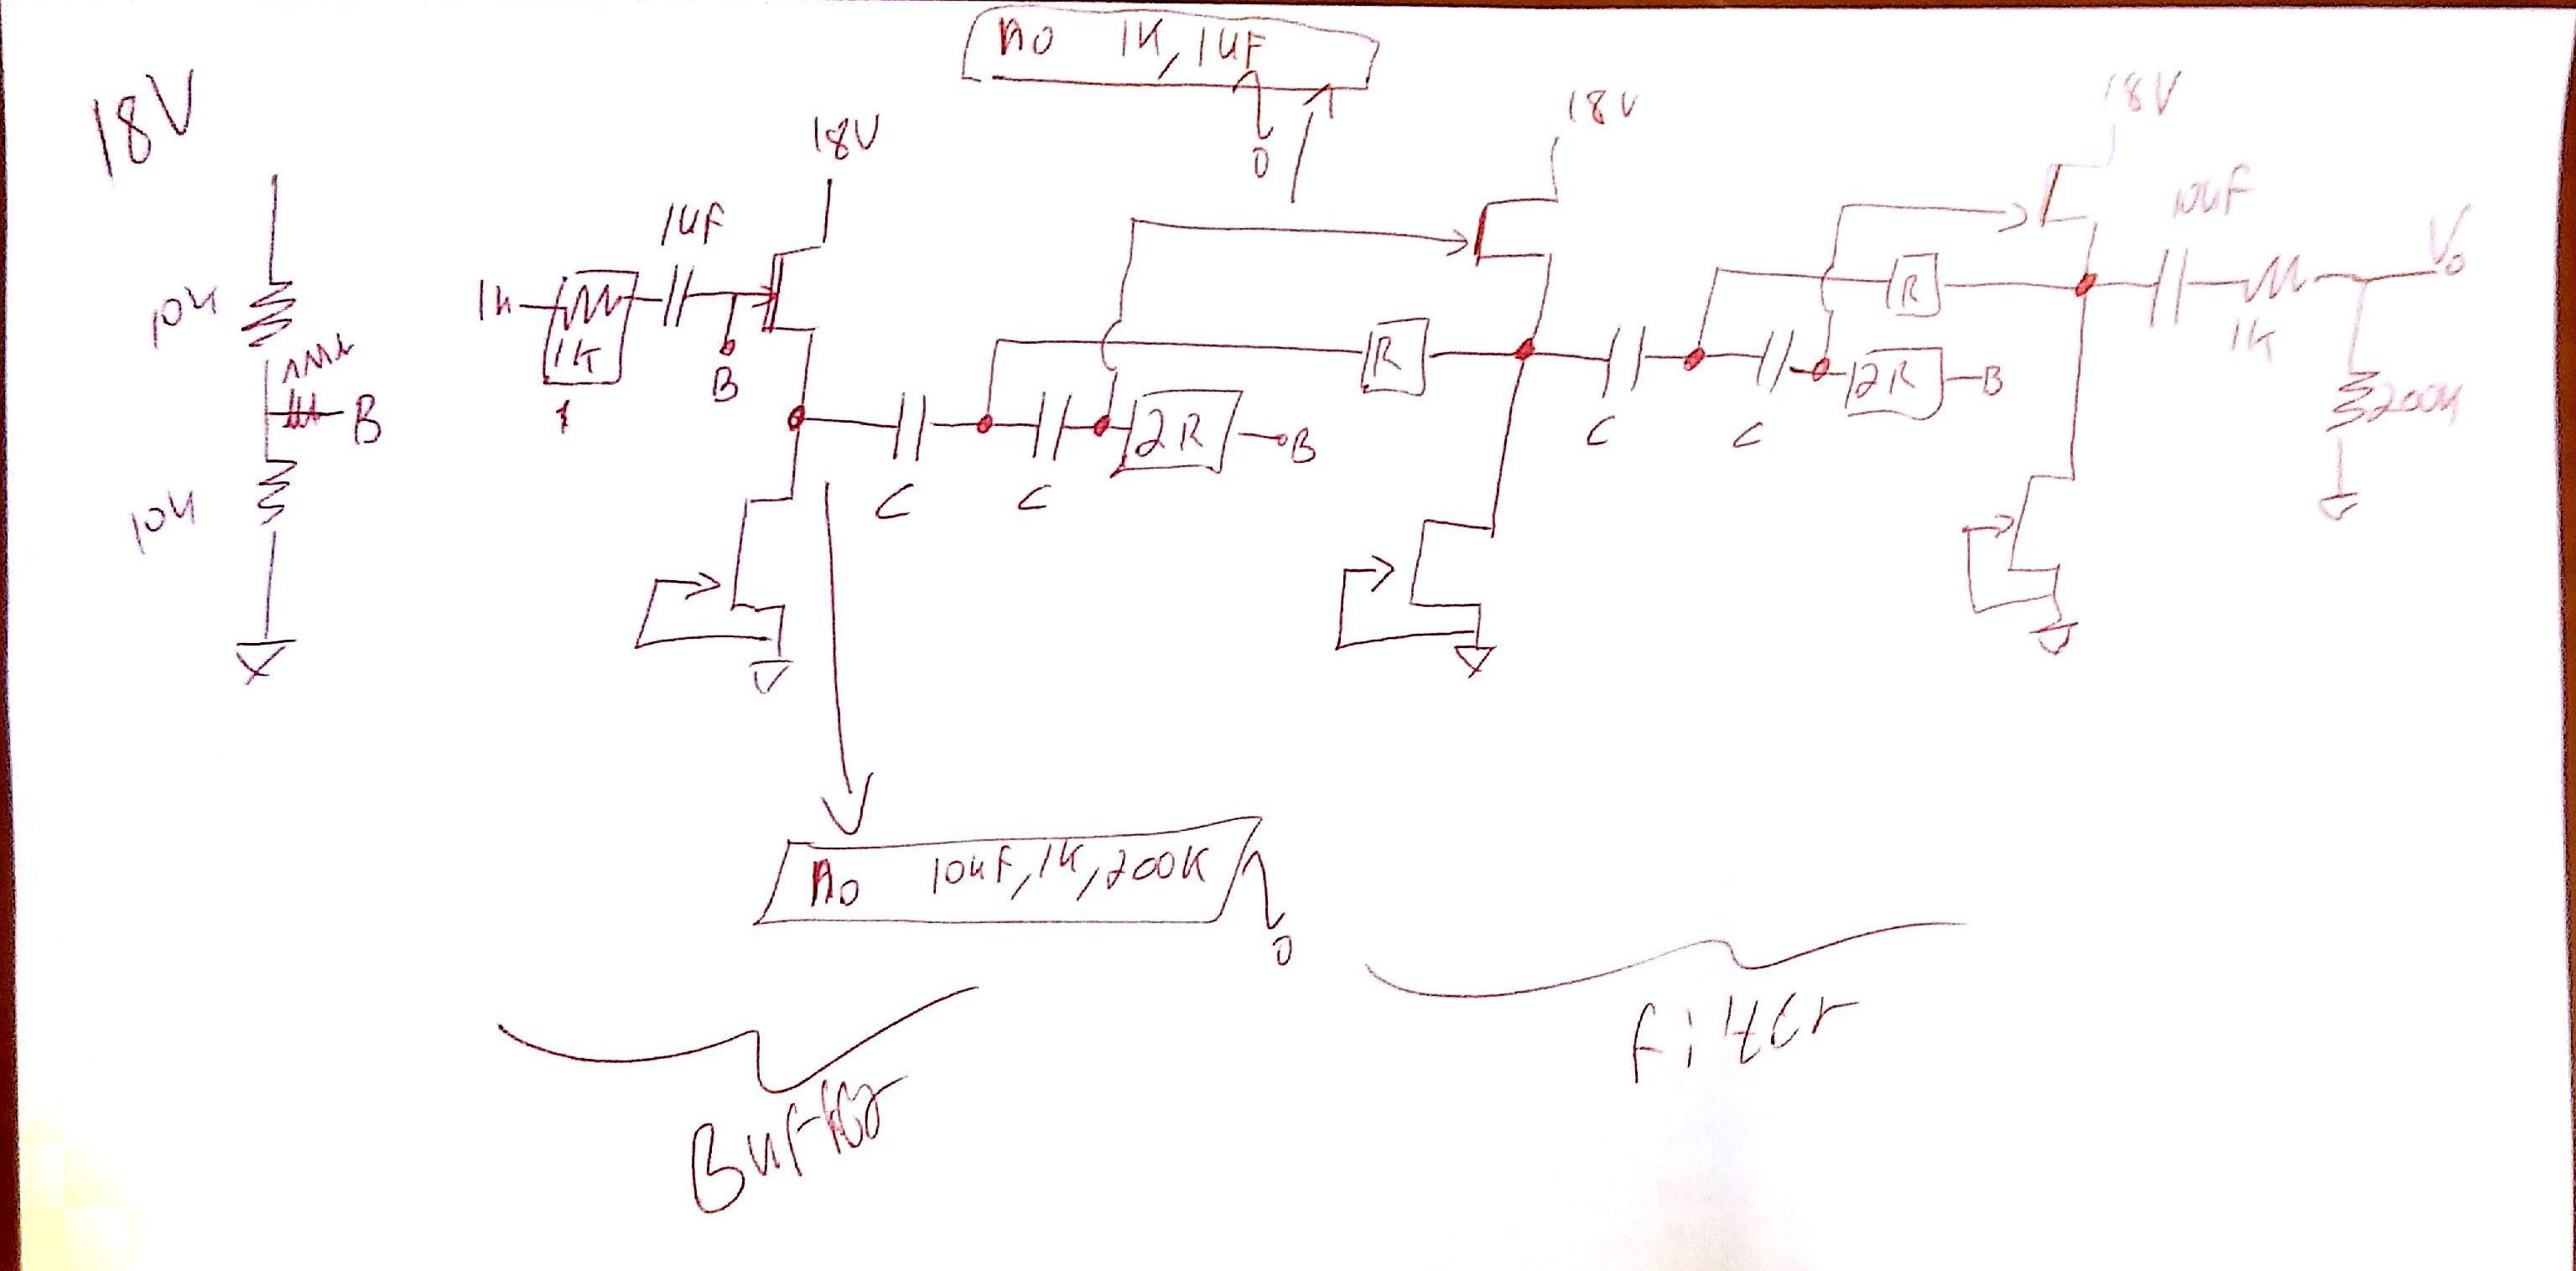 no 1K, 1uF
0
18V
18V
18V
18V
1uF
10uF
10K
In
1K
B
R
R
Vo
1K
B
B
2R
B
2R
B
200K
C
C
C
C
10K
no 10uF, 1K, 200K
0
Buffer
Filter